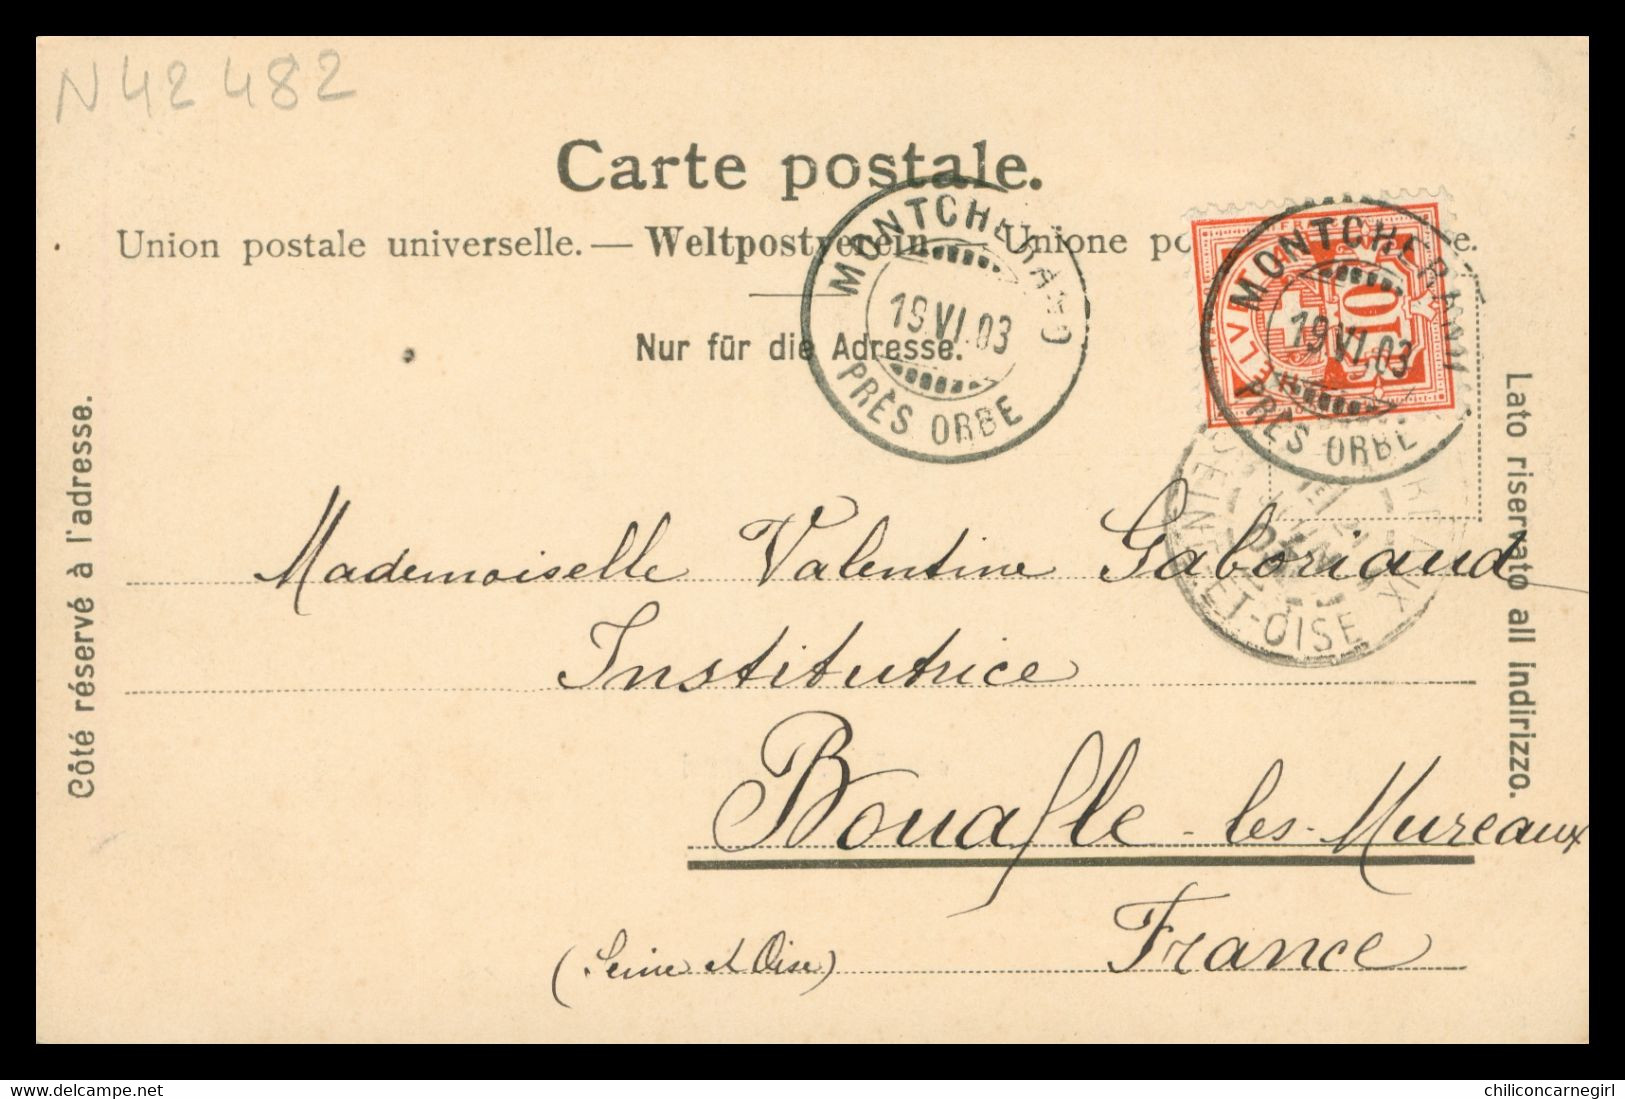 N 42 482
Carte postale.
Union postale universelle. — Weltpostverein. — Unione
Nur für die Adresse.
MONTCHERAND
19.VI.03
PRÈS ORBE
HELVETIA
10
MONTCHERAND
19.VI.03
PRÈS ORBE
SEINE-ET-OISE
Côté réservé à l'adresse.
Lato riservato all indirizzo.
Mademoiselle Valentine Gaboriaud
Institutrice
Bouafle-les-Mureaux
France
(Seine et Oise)
www.delcampe.net
chiliconcarnegirl